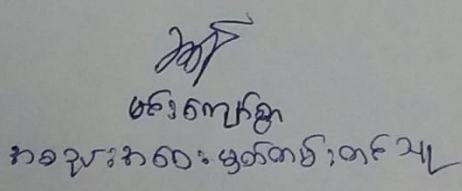 မင်းကျော်စွာ
အစည်းအဝေးမှတ်တမ်းတင်သူ